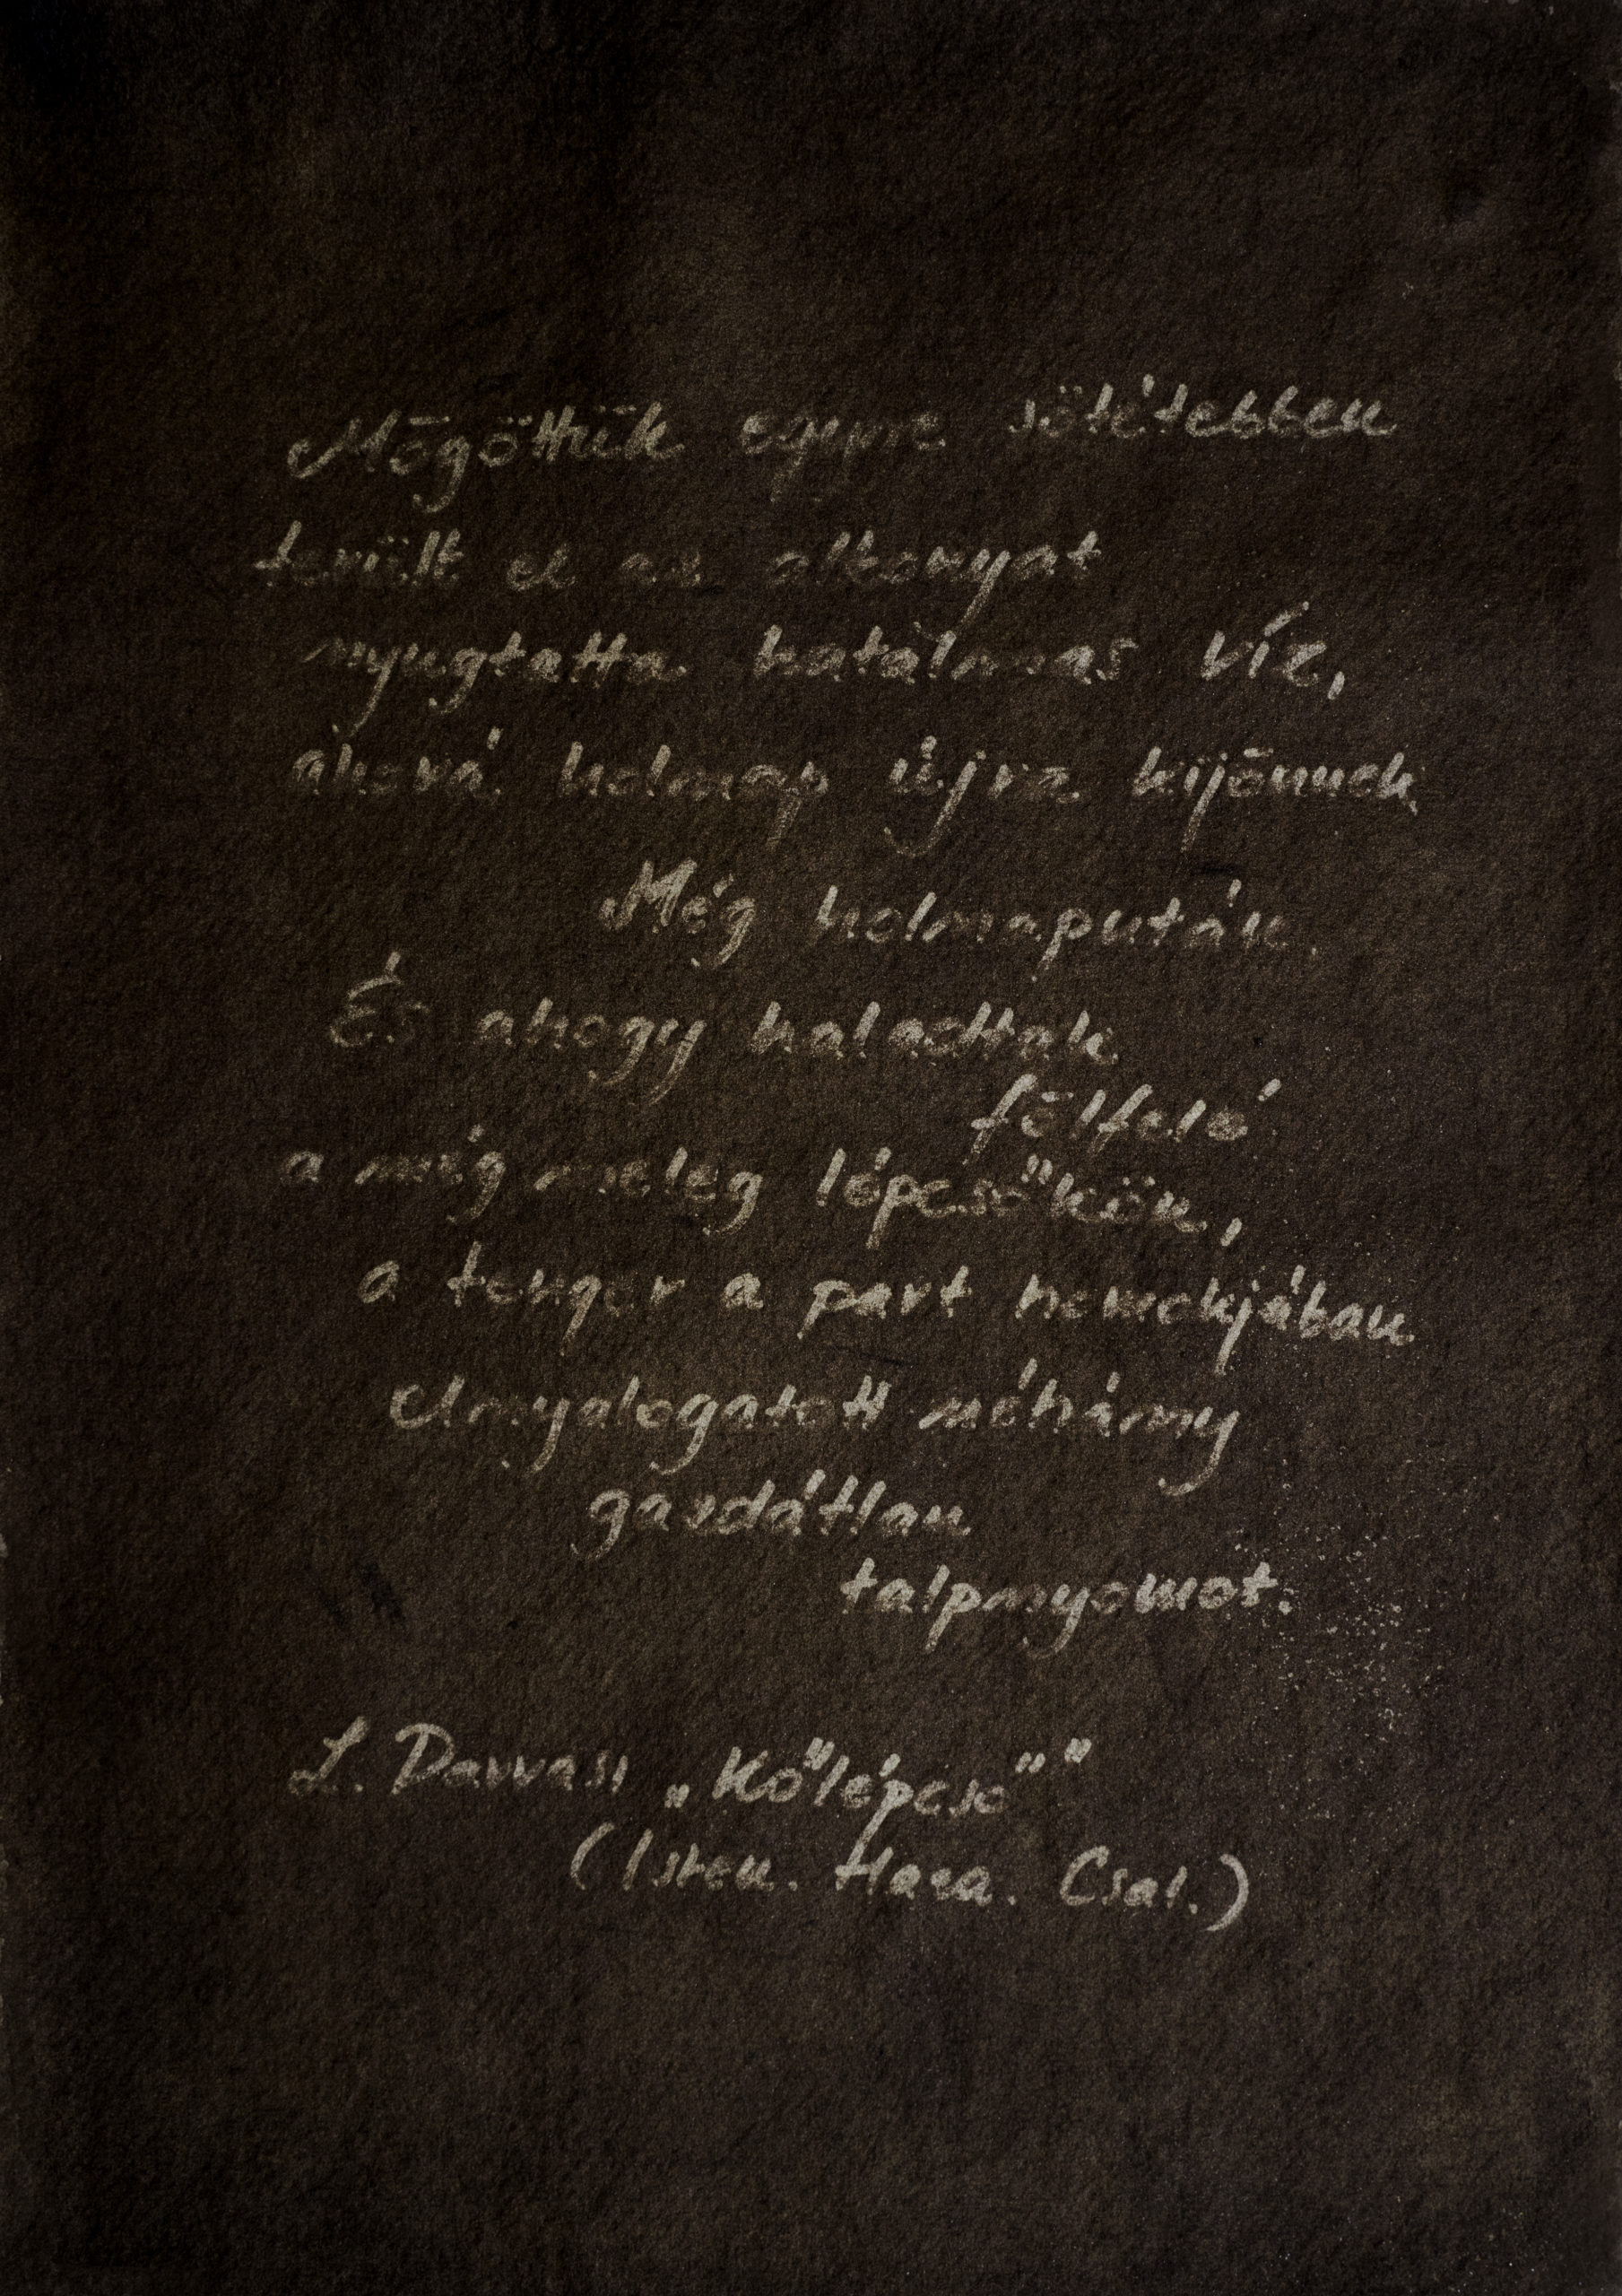 Mögöttük egyre sötétebben
terült el az alkonyat
nyugtatta hatalmas víz,
ahová holnap újra kijönnek
Még holnapután.
És ahogy haladtak
fölfelé
a még meleg lépcsőkön,
a tenger a part homokjában
elnyalogatott néhány
gazdátlan
talpnyomot.
L. Darvasi „Kőlépcső"
(Isten. Haza. Csal.)